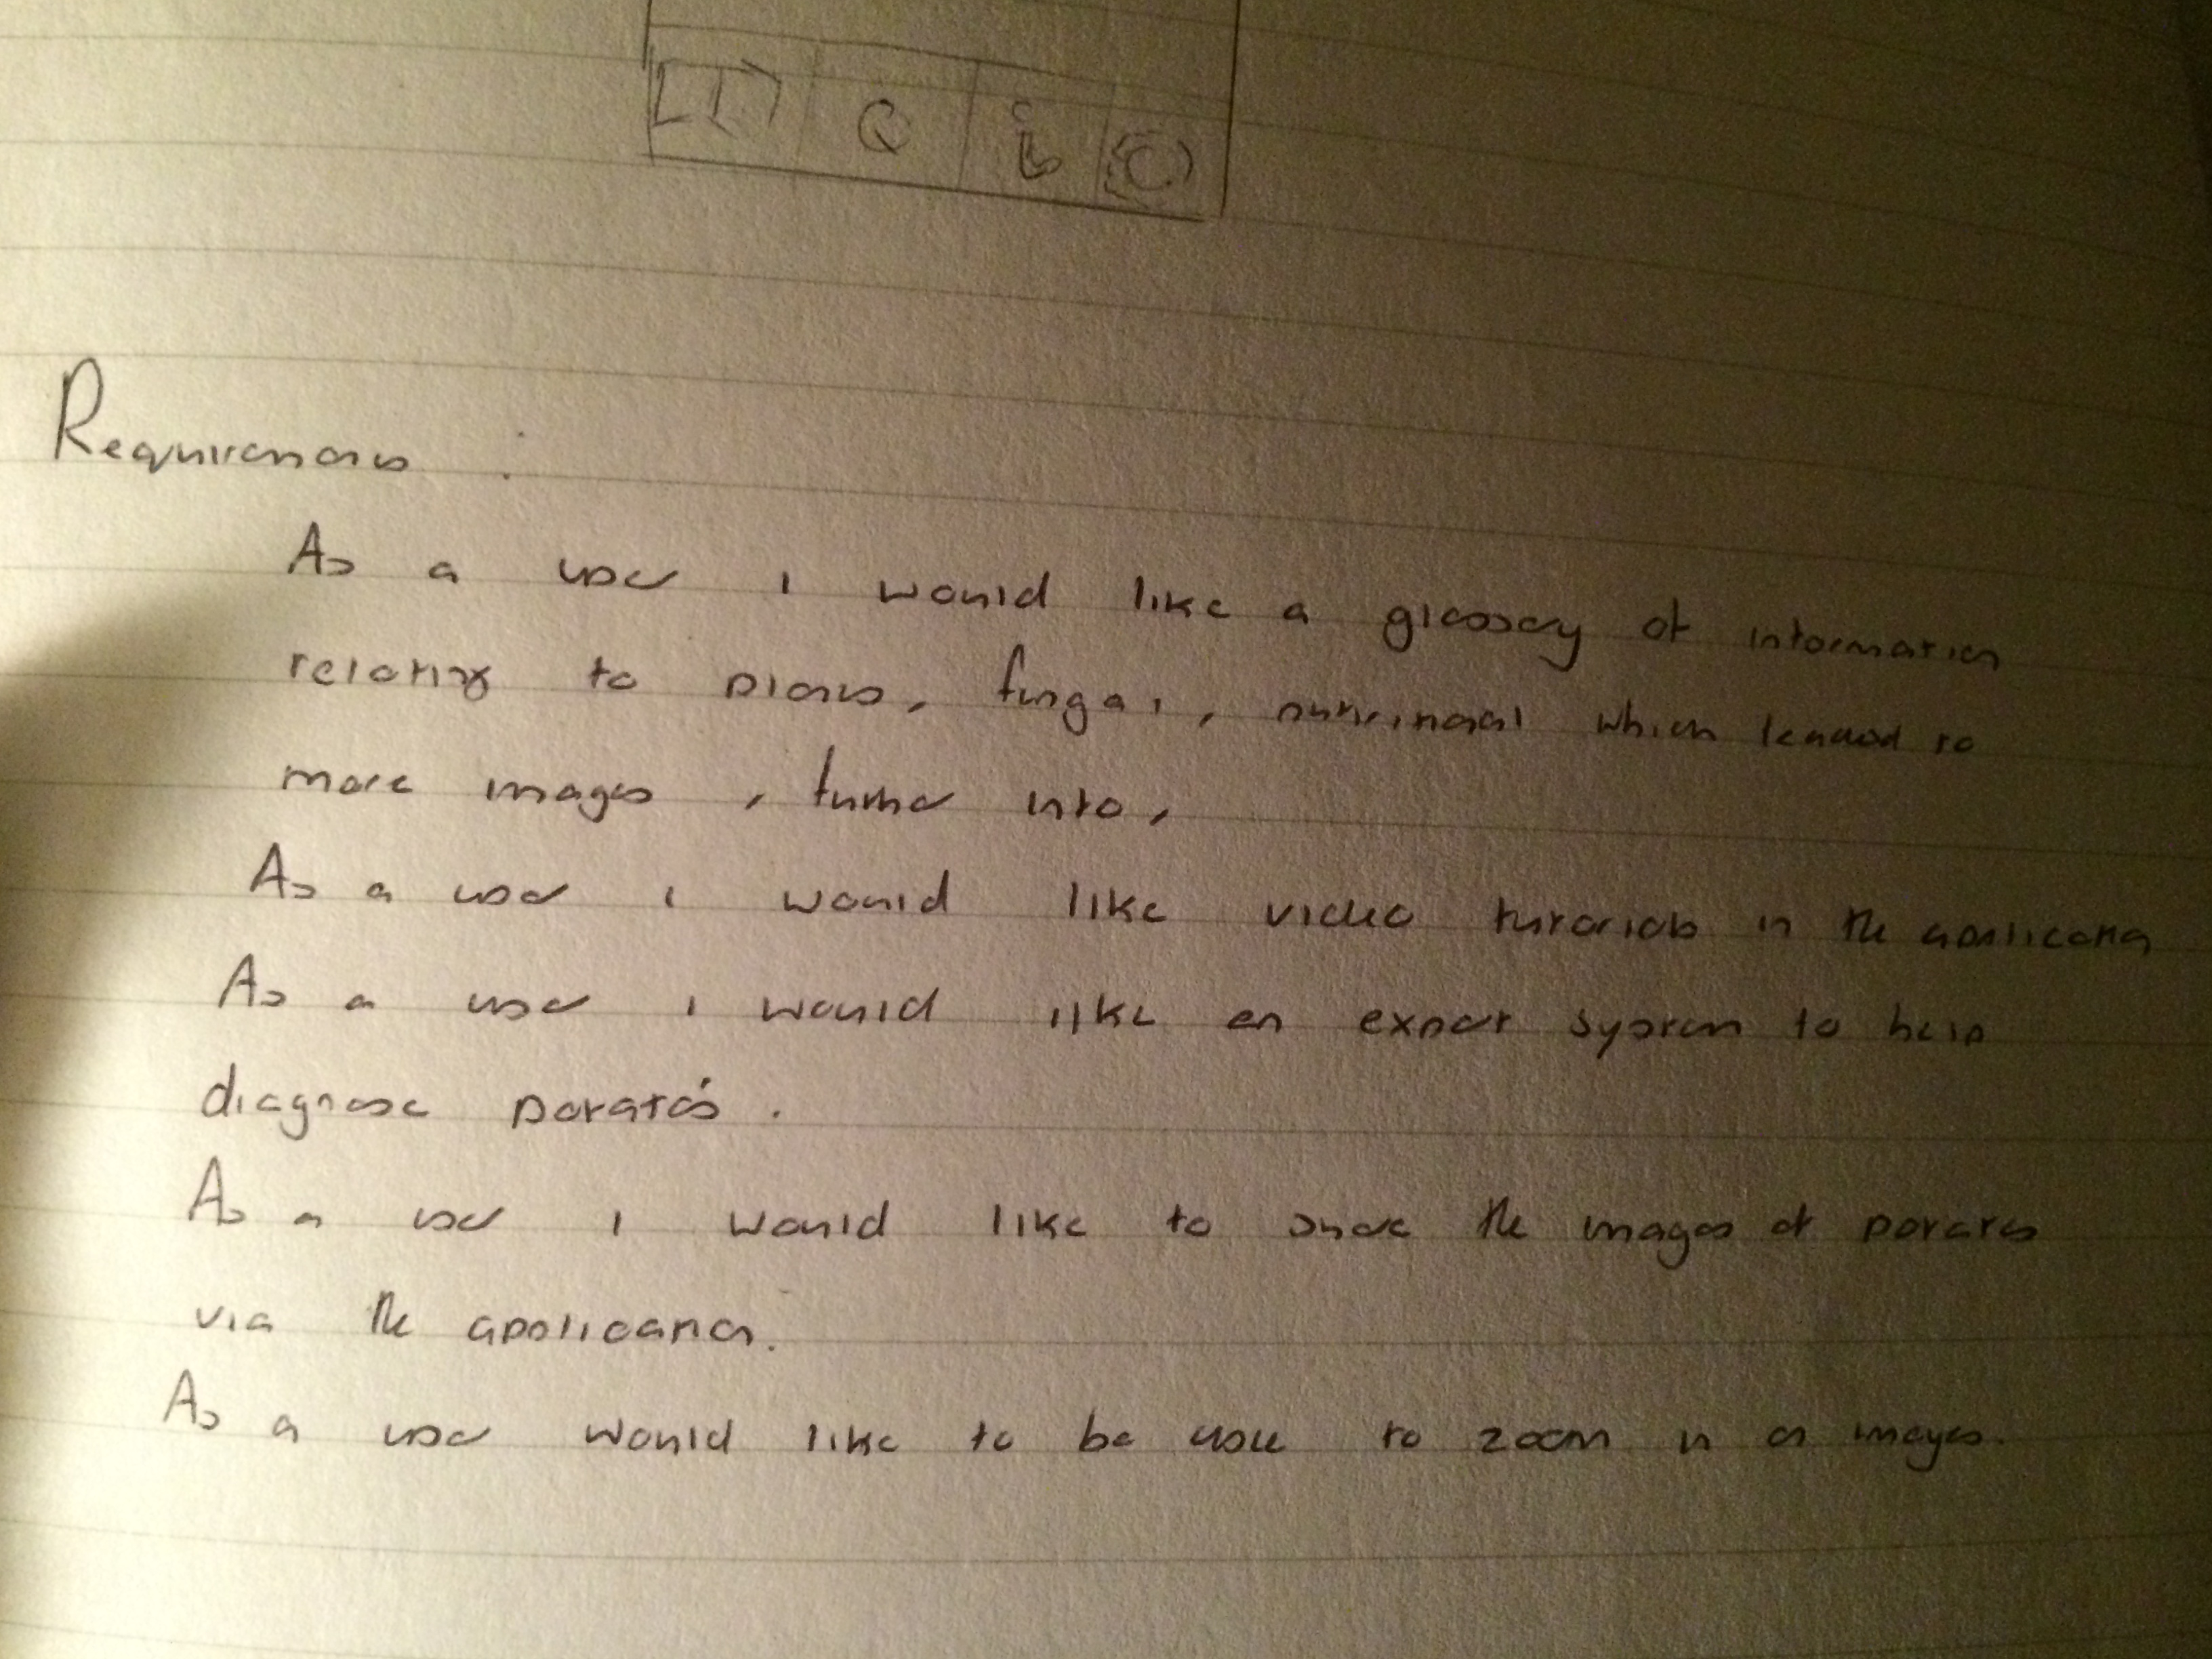 Q i
Requirements :
As a user i would like a glossary of information
relating to , fungal, nutritional which to
more images, further info,
As a user i would like video tutorials in the application
As a user i would like an expert system to help
diagnose .
As a user i would like to the images of
via the application.
As a user would like to be able to zoom in on images.